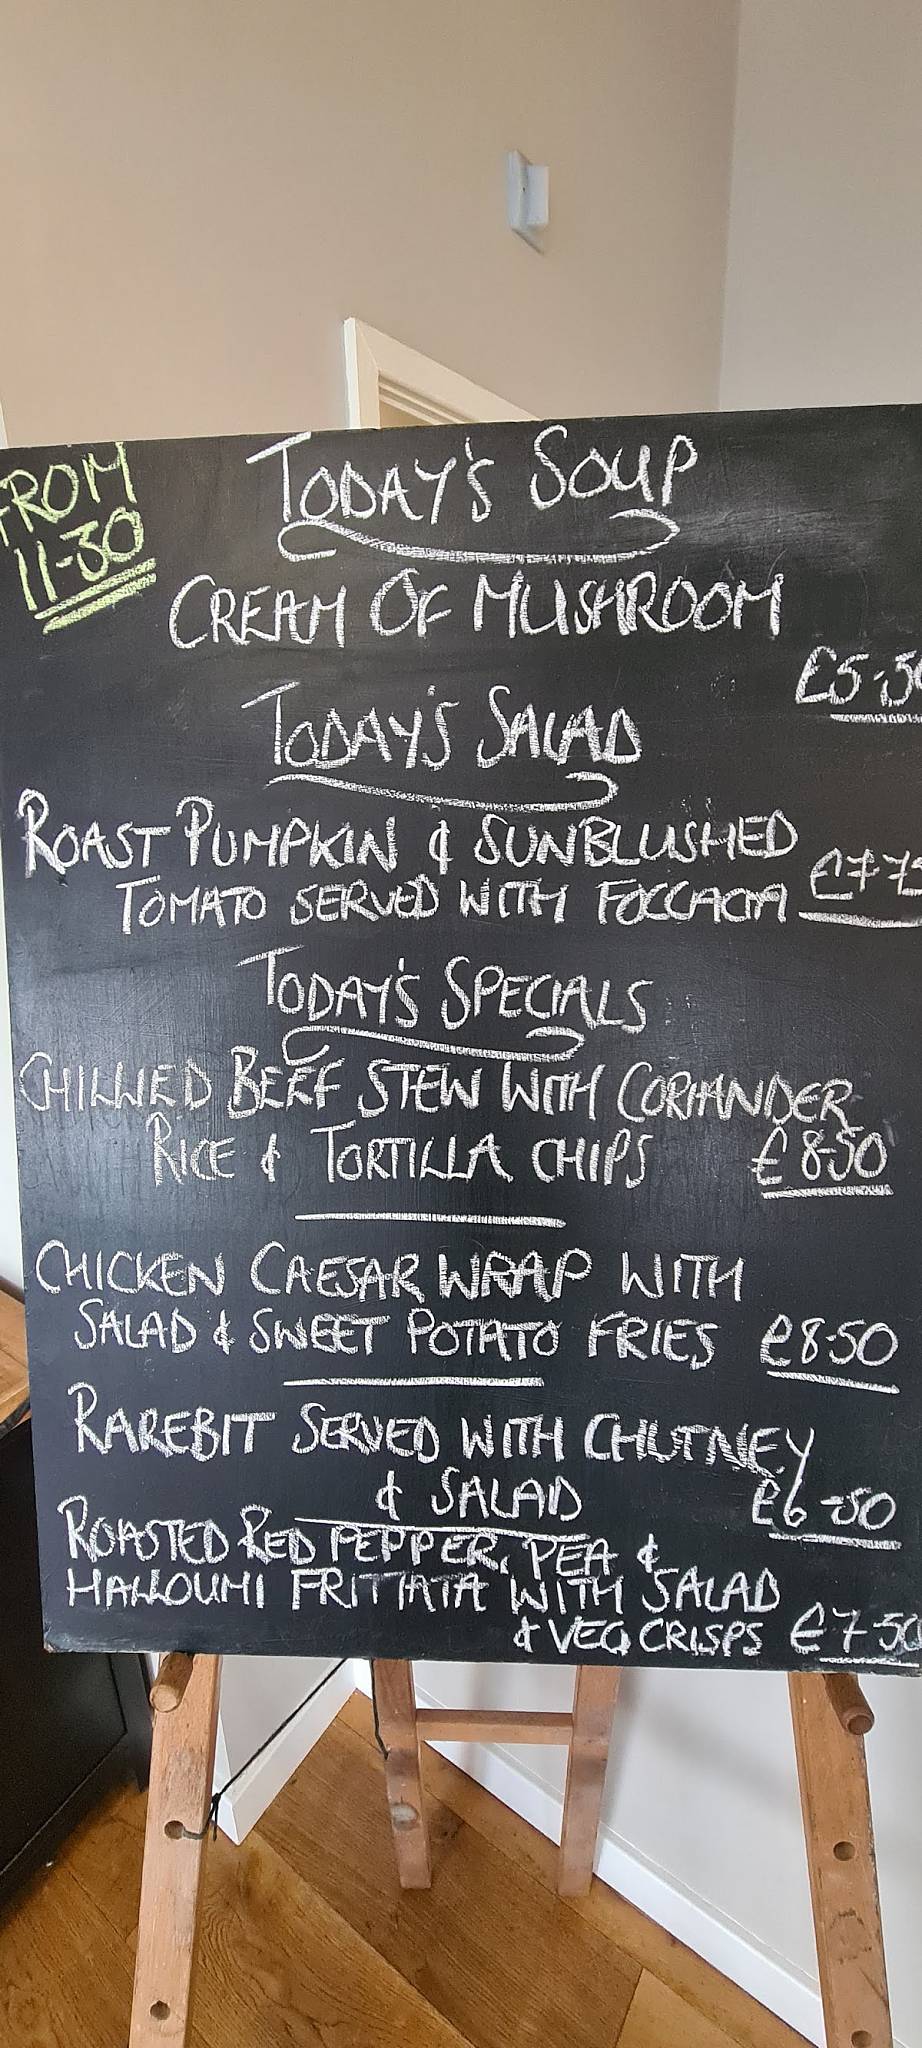 FROM
11-30
TODAY'S SOUP
CREAM OF MUSHROOM
£5-50
TODAY'S SALAD
ROAST PUMPKIN & SUNBLUSHED
TOMATO SERVED WITH FOCCACIA
TODAY'S SPECIALS
CHILLIED BEEF STEW WITH CORIANDER
RICE & TORTILLA CHIPS £8-50
CHICKEN CAESAR WRAP WITH
SALAD & SWEET POTATO FRIES £8-50
RAREBIT SERVED WITH CHUTNEY
& SALAD £6-50
ROASTED RED PEPPER, PEA &
HALLOUMI FRITTATA WITH SALAD
& VEG CRISPS £7-50